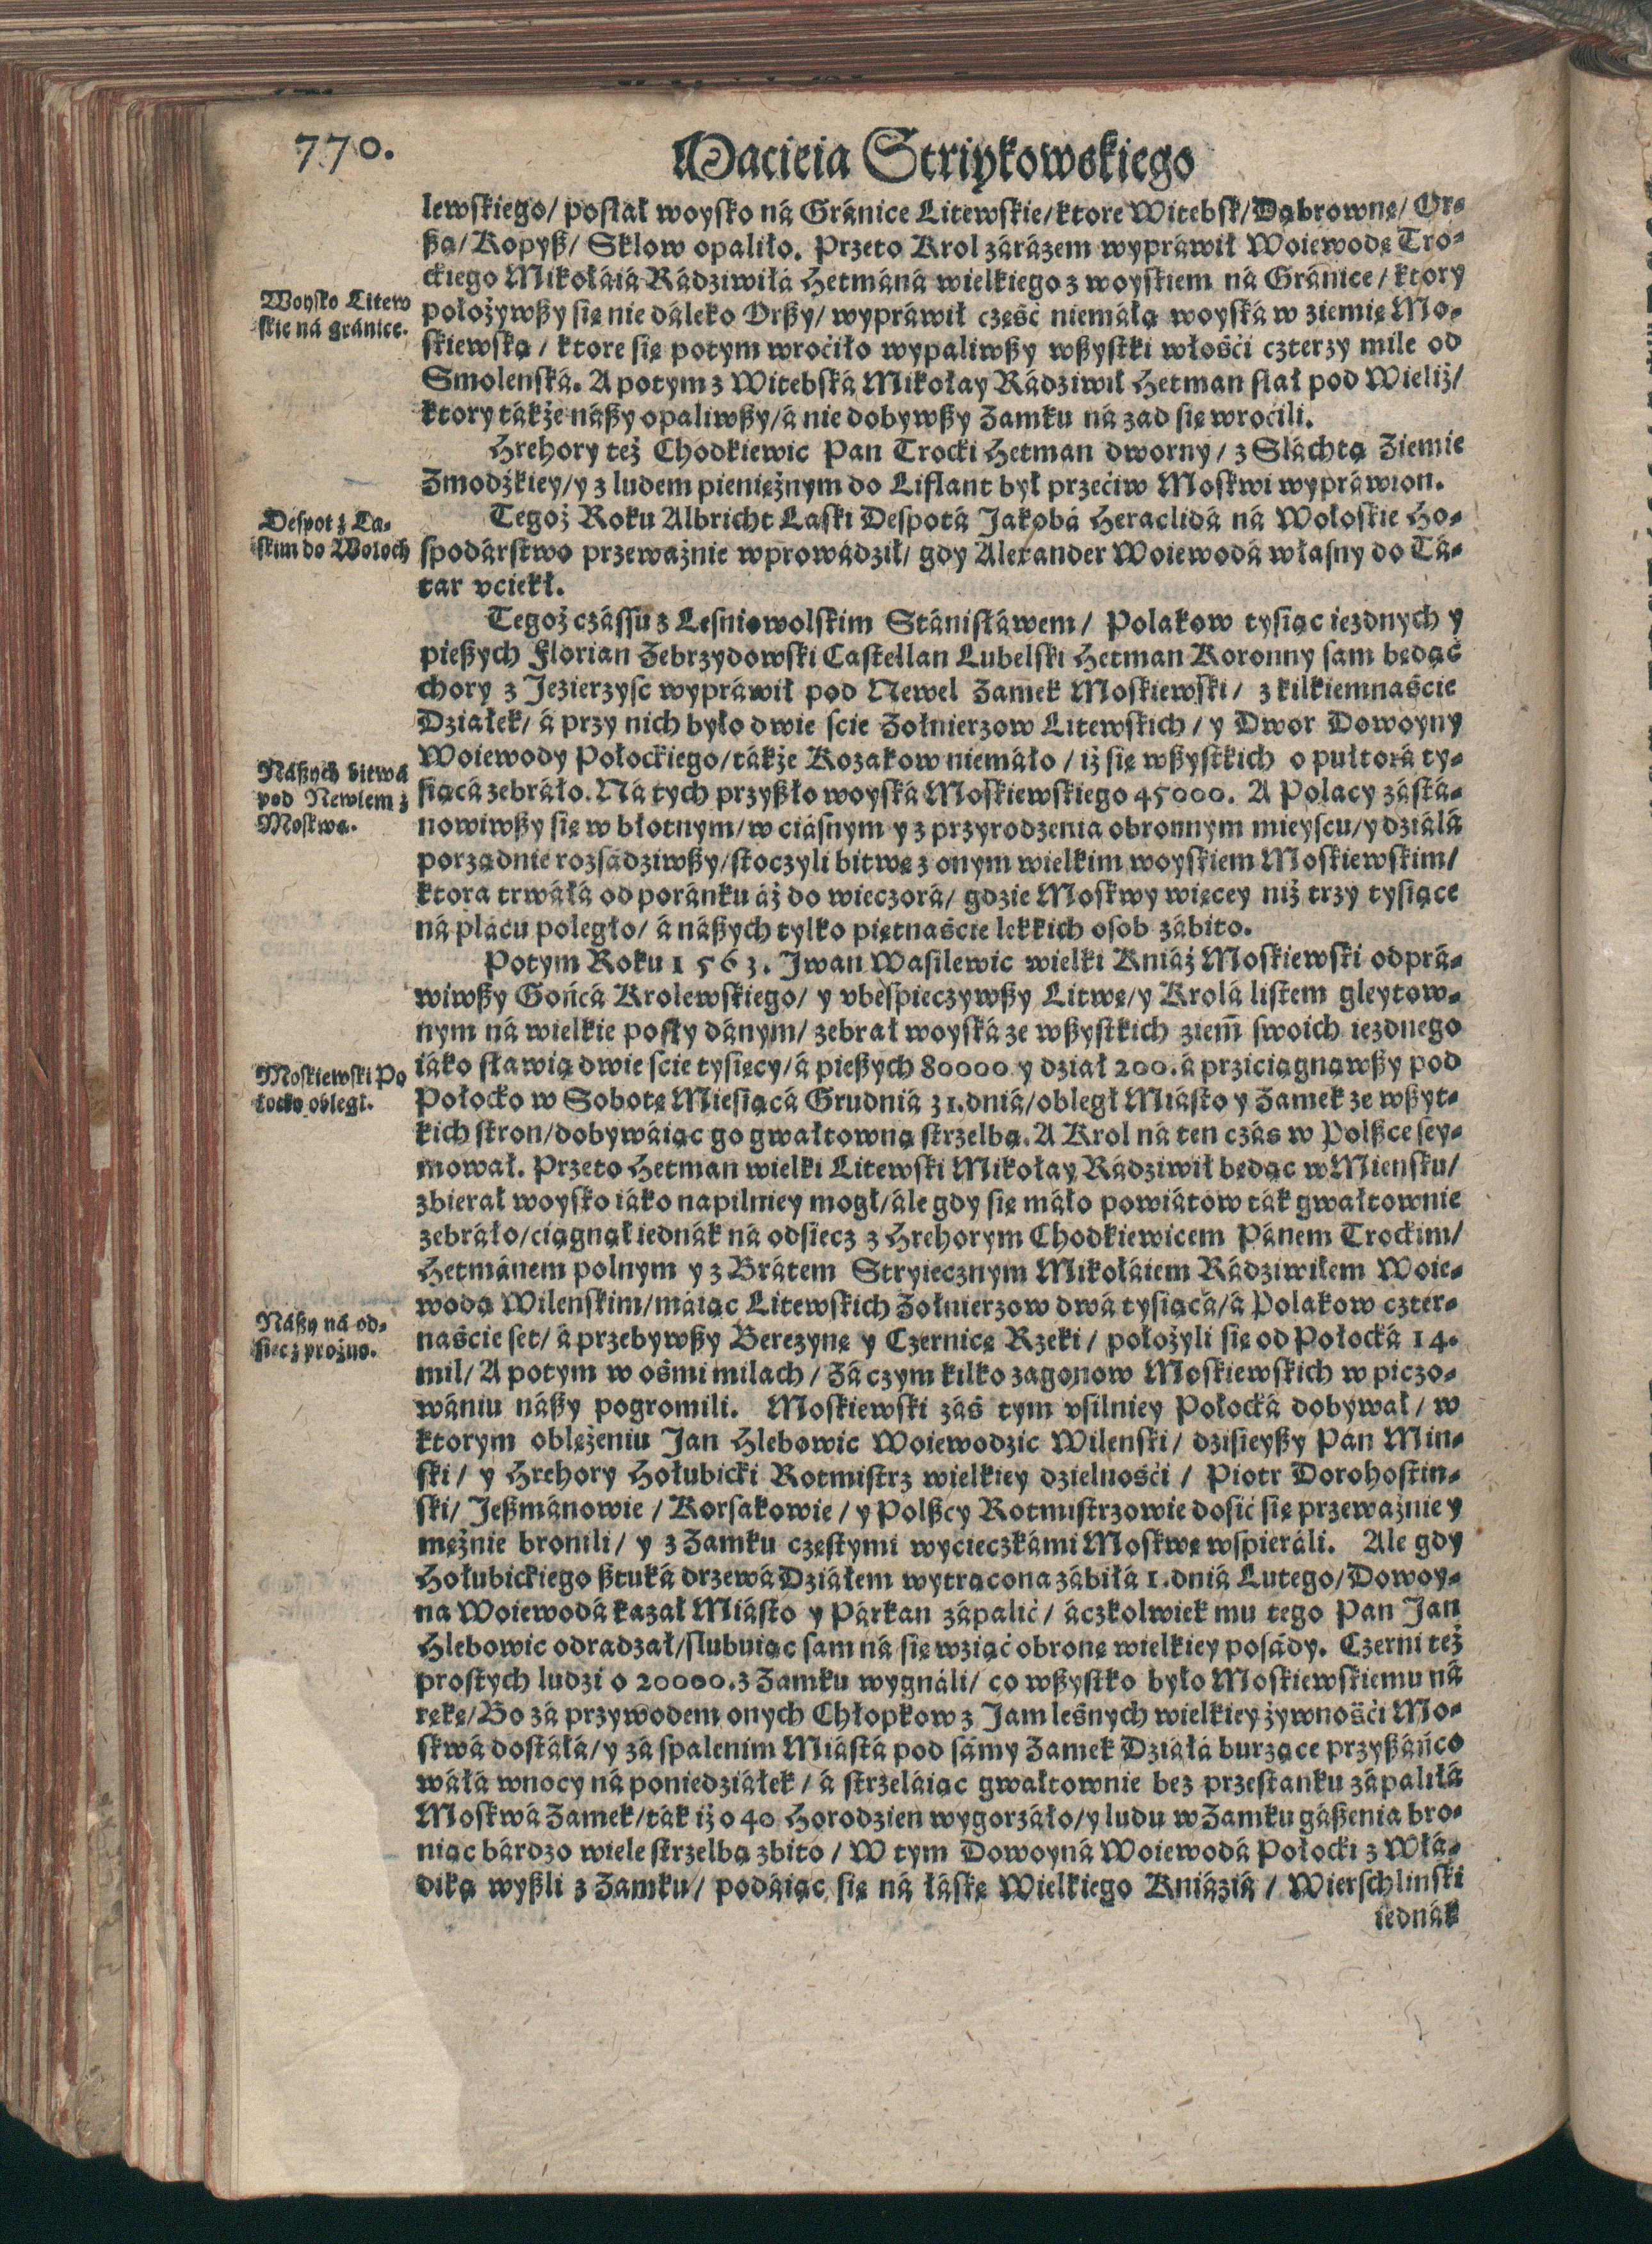 770.
Macieia Striykowskiego
lewskiego/ posłał woysko ná Gránice Litewskie/ ktore Witebsk/ Dąbrownę/ Or-
ßą/ Kopyß/ Sklow opaliło. Przeto Krol zárázem wypráwił Woiewodę Tro-
ckiego Mikołáiá Rádziwiłá Hetmáná wielkiego z woyskiem ná Gránice/ ktory
Woysko Litew
skie ná gránice.
położywßy się nie dáleko Orßy/ wypráwił część niemáłą woyská w ziemię Mo-
skiewską/ ktore się potym wroćiło wypaliwßy wßystki włośći czterzy mile od
Smolenská. A potym z Witebská Mikołay Rádziwił Hetman słał pod Wieliż/
ktory tákże náßy opaliwßy/ á nie dobywßy Zamku ná zad się wroćili.
Hrehory też Chodkiewic Pan Trocki Hetman dworny/ z Slachtą Ziemie
Zmodźkiey/ y z ludem pieniężnym do Liflant był przećiw Moskwi wypráwion.
Despot z Ła-
skim do Wołoch
Tegoż Roku Albricht Łaski Despotá Jakobá Heraclidá ná Wołoskie Ho-
spodárstwo przeważnie wprowádził/ gdy Alexander Woiewodá własny do Tá-
tar vciekł.
Tegoż czássu z Lesniowolskim Stánisłáwem/ Polakow tysiąc iezdnych y
pießych Florian Zebrzydowski Castellan Lubelski Hetman Koronny sam będąć
chory z Jezierzysc wypráwił pod Newel Zamek Moskiewski/ z kilkiemnaście
Działek/ á przy nich było dwie ście Zołnierzow Litewskich/ y Dwor Dowoyny
Woiewody Połockiego/ tákże Kozakow niemáło/ iż się wßystkich o pułtorá ty-
Náßych bitwá
pod Newlem z
Moskwą.
siącá zebráło. Ná tych przyßło woyská Moskiewskiego 45000. A Polacy zástá-
nowiwßy się w błotnym/ w ciásnym y z przyrodzenia obronnym mieyscu/ y działá
porządnie rozsádziwßy/ stoczyli bitwę z onym wielkim woyskiem Moskiewskim/
ktora trwáłá od poránku áż do wieczorá/ gdzie Moskwy więcey niż trzy tysiące
ná plácu poległo/ á náßych tylko piętnaście lekkich osob zábito.
Potym Roku 1563. Jwan Wasilewic wielki Kniáź Moskiewski odprá-
wiwßy Gońcá Krolewskiego/ y vbespieczywßy Litwę/ y Krolá listem gleytow-
nym ná wielkie posły dánym/ zebrał woyská ze wßystkich ziem̃ swoich iezdnego
Moskiewski Po
łocko obległ.
iáko sławią dwie ście tysięcy/ á pießych 80000 y dział 200. á przićiągnąwßy pod
Połocko w Sobotę Miesiącá Grudniá 31. dniá/ obległ Miásto y Zamek ze wßyt-
kich stron/ dobywáiąc go gwałtowną strzelbą. A Krol ná ten czás w Polßce sey-
mował. Przeto Hetman wielki Litewski Mikołay Rádziwił będąc w Miensku/
zbierał woysko iáko napilniey mogł/ ále gdy się máło powiátow ták gwałtownie
zebráło/ ciągnął iednák ná odsiecz z Hrehorym Chodkiewicem Pánem Trockim/
Hetmánem polnym y z Brátem Stryiecznym Mikołáiem Rádziwiłem Woie-
wodą Wilenskim/ máiąc Litewskich Zołnierzow dwá tysiącá/ á Polakow czter-
Náßy ná od-
siecz prożno.
naście set/ á przebywßy Berezynę y Czernicę Rzeki/ położyli się od Połocká 14.
mil/ A potym w ośmi milach/ Zá czym kilko zagonow Moskiewskich w piczo-
wániu náßy pogromili. Moskiewski záś tym vsilniey Połocká dobywał/ w
ktorym oblężeniu Jan Hlebowic Woiewodzic Wilenski/ dzisieyßy Pan Min-
ski/ y Hrehory Hołubicki Rotmistrz wielkiey dzielnośći/ Piotr Dorohostin-
ski/ Jeßmánowie/ Korsakowie/ y Polßcy Rotmistrzowie dosić się przeważnie y
mężnie bronili/ y z Zamku częstymi wycieczkámi Moskwę wspieráli. Ale gdy
Hołubickiego ßtuká drzewá Działem wytrącona zábiłá 1. dniá Lutego/ Dowoy-
na Woiewodá kazał Miásto y Párkan zápalić/ áczkolwiek mu tego Pan Jan
Hlebowic odradzał/ slubuiąc sam ná się wziąć obronę wielkiey posády. Czerni też
prostych ludzi o 20000. z Zamku wygnáli/ co wßystko było Moskiewskiemu ná
rękę/ Bo zá przywodem onych Chłopkow z Jam leśnych wielkiey żywnośći Mo-
skwá dostáłá/ y zá spalenim Miástá pod sámy Zamek Działá burzące przyßáńco
wáłá w nocy ná poniedziałek/ á strzeláiąc gwałtownie bez przestanku zápaliłá
Moskwá Zamek/ ták iż o 40 Horodzien wygorzáło/ y ludu w Zamku gáßenia bro-
niąc bárdzo wiele strzelbą zbito/ W tym Dowoyná Woiewodá Połocki z Włá-
diką wyßli z Zamku/ podáiąc się ná łáskę Wielkiego Kniáziá/ Wierschlinski
iednák